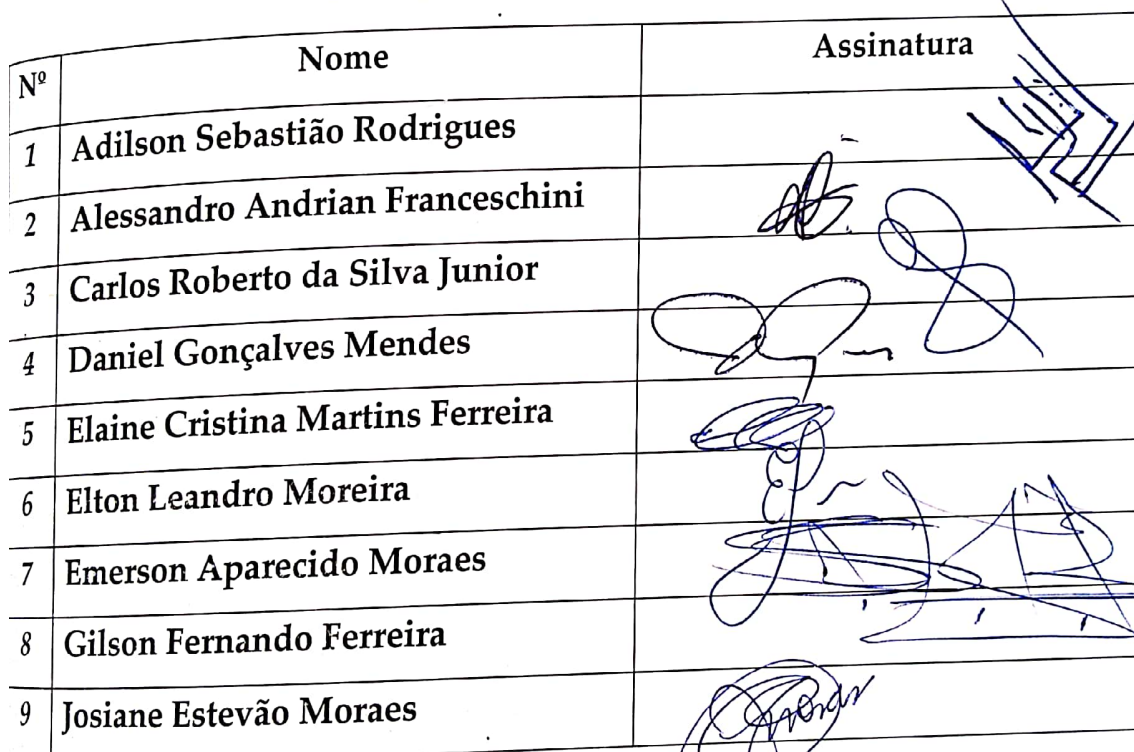 Nº Nome Assinatura
1 Adilson Sebastião Rodrigues
2 Alessandro Andrian Franceschini
3 Carlos Roberto da Silva Junior
4 Daniel Gonçalves Mendes
5 Elaine Cristina Martins Ferreira
6 Elton Leandro Moreira
7 Emerson Aparecido Moraes
8 Gilson Fernando Ferreira
9 Josiane Estevão Moraes